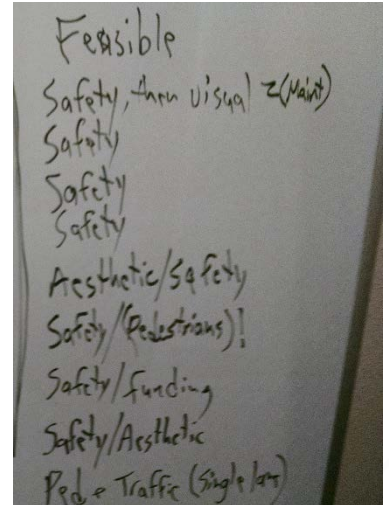 Feasible
Safety, then visual (Maint)
Safety
Safety
Safety
Aesthetic/Safety
Safety/(Pedestrians)!
Safety/funding
Safety/Aesthetic
Ped + Traffic (Single lane)